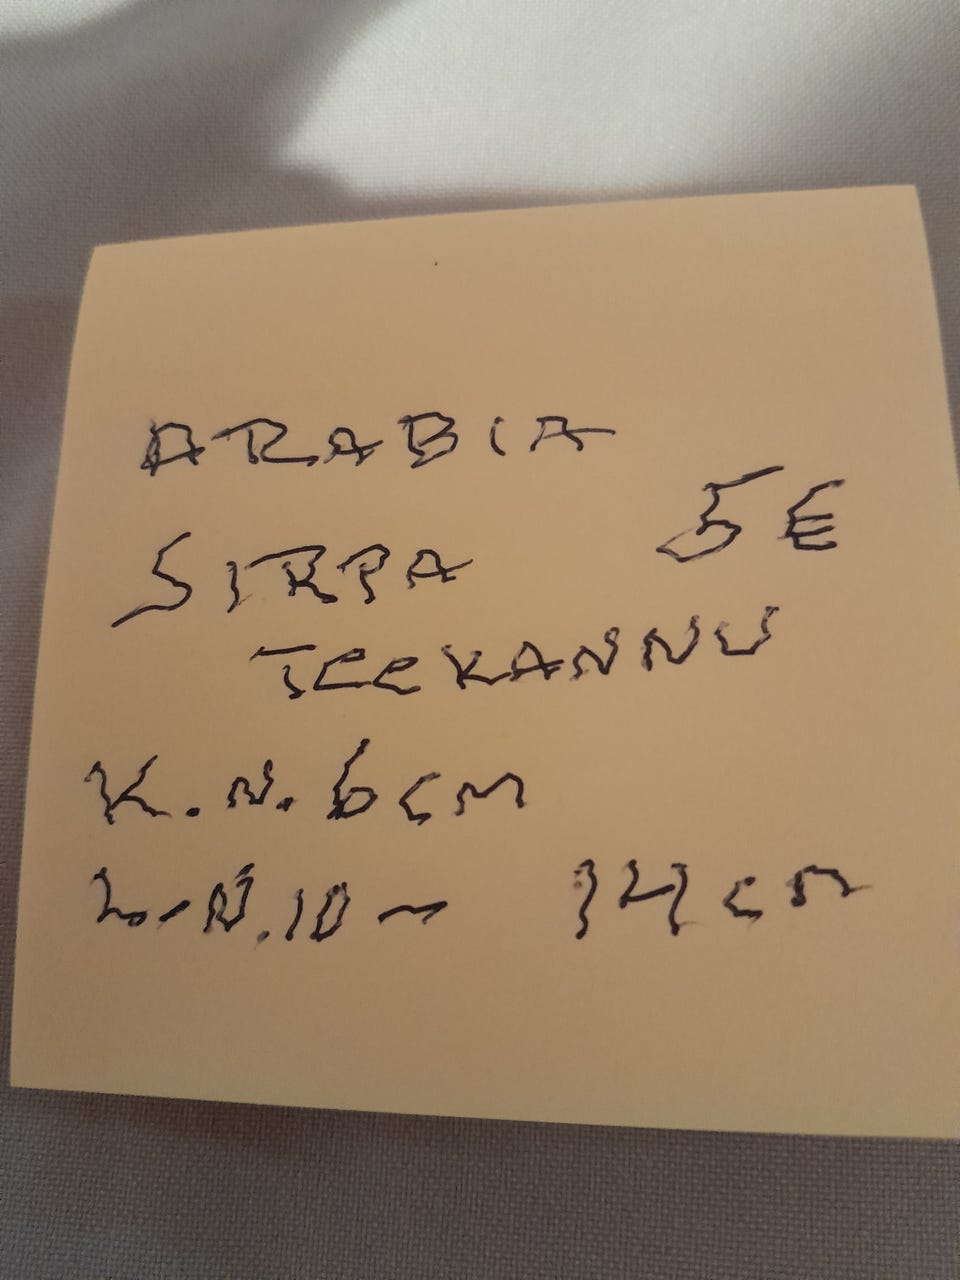 ARABIA
SIRPA 5€
TEEKANNU
K.N. 6cm
L.N. 10 – 14cm